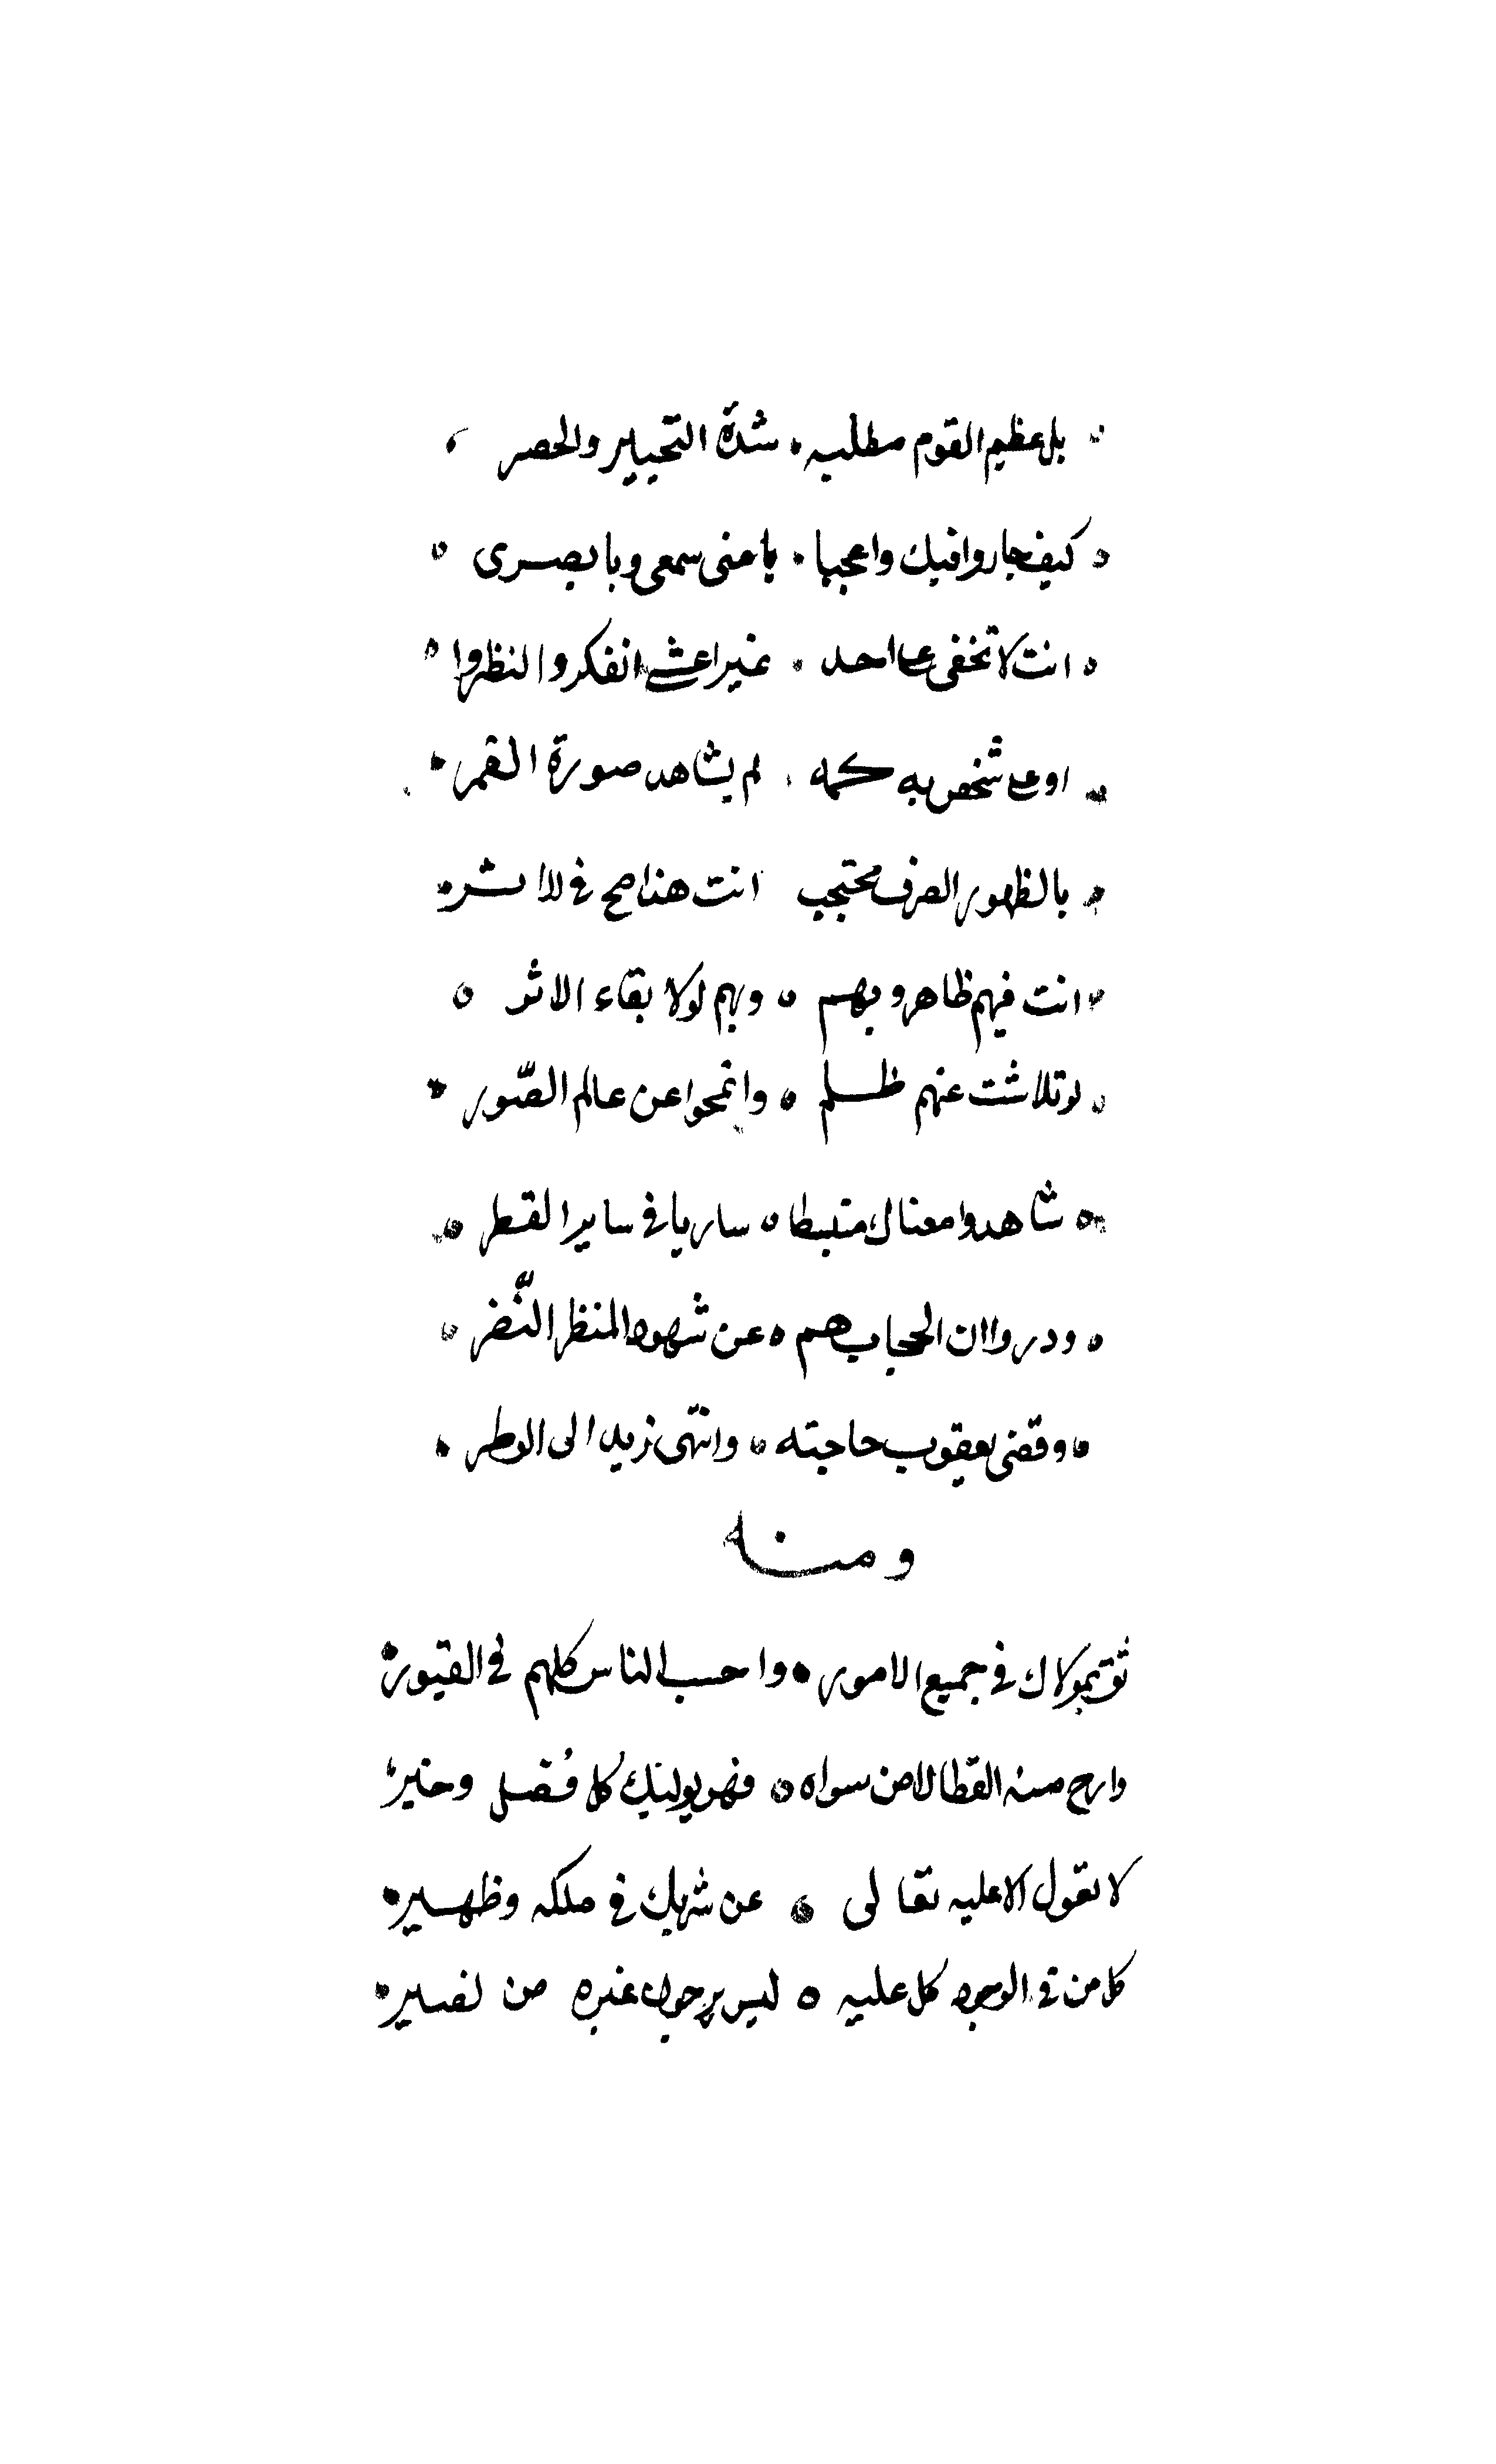 بل عظيم القوم مطلبه شدة التحيير والحصر
كيف حاروا فيك واعجبا يا منى سمعى ويا بصرى
انت لا تخفى على احد غير اعشى الفكر والنظر
او على شخص به كمه لم يشاهد صورة القمر
بالظهور الصرف محتجب انت هذا صح فى الاثر
انت فيهم ظاهر وبهم وبهم لولا بقاء الاثر
لو تلاشت عنهم ظلم وانمحوا عن عالم الصّور
شاهدوا معناك منبسطا ساريا فى ساير القطر
ودروا ان الحجاب هم عن شهود المنظر النّضر
وقضى يعقوب حاجته وانتهى زيد الى الوطر
ومنه
ثق بمولاك فى جميع الامور واحسب الناس كلهم فى القبور
وارج منه العطا لا من سواه فهو يوليك كل فضل وخير
لا تعول الا عليه تعالى عن شريك فى ملكه وظهير
كل من فى الوجود كل عليه ليس يرجون غيره من نصير